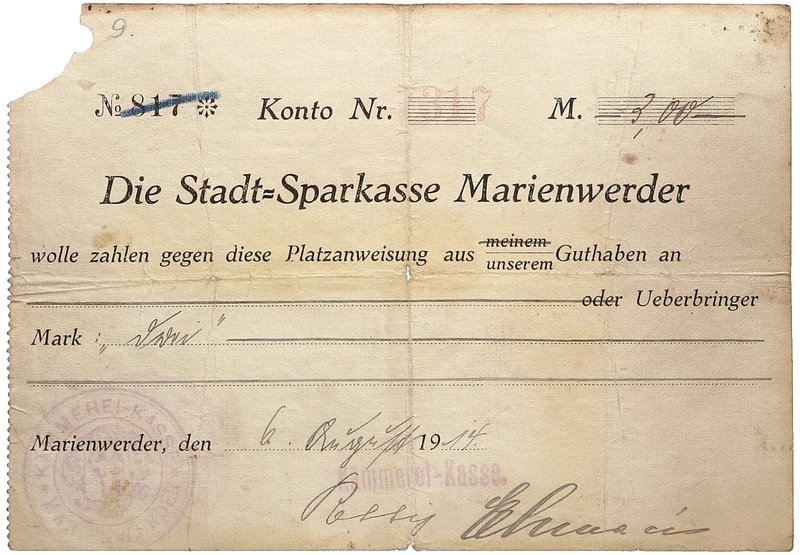 9.
№ 817 Konto Nr. 1317 M. 3,00
Die Stadt=Sparkasse Marienwerder
wolle zahlen gegen diese Platzanweisung aus meinem unserem Guthaben an
oder Ueberbringer
Mark: „Drei“
Marienwerder, den 6. August 1914
Kämmerei-Kasse.